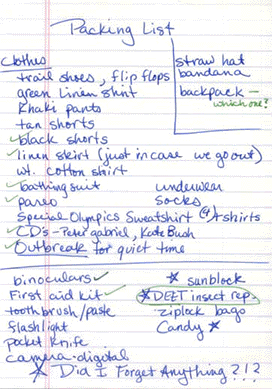 Packing List
straw hat
bandana
backpack –
which one?
Clothes
trail shoes, flip flops
green linen shirt
khaki pants
tan shorts
✓black shorts
✓linen skirt (just in case we go out)
wt. cotton shirt
✓bathing suit underwear
✓pareo socks
Special Olympics Sweatshirt (4) t shirts
✓CD's – Peter Gabriel, Kate Bush
✓Outbreak for quiet time
binoculars✓ ★ sunblock
First aid kit ✓ ★DEET insect rep.
toothbrush/paste ziplock bags
flashlight Candy ★
pocket knife
camera-digital
★ Did I Forget Anything?!?